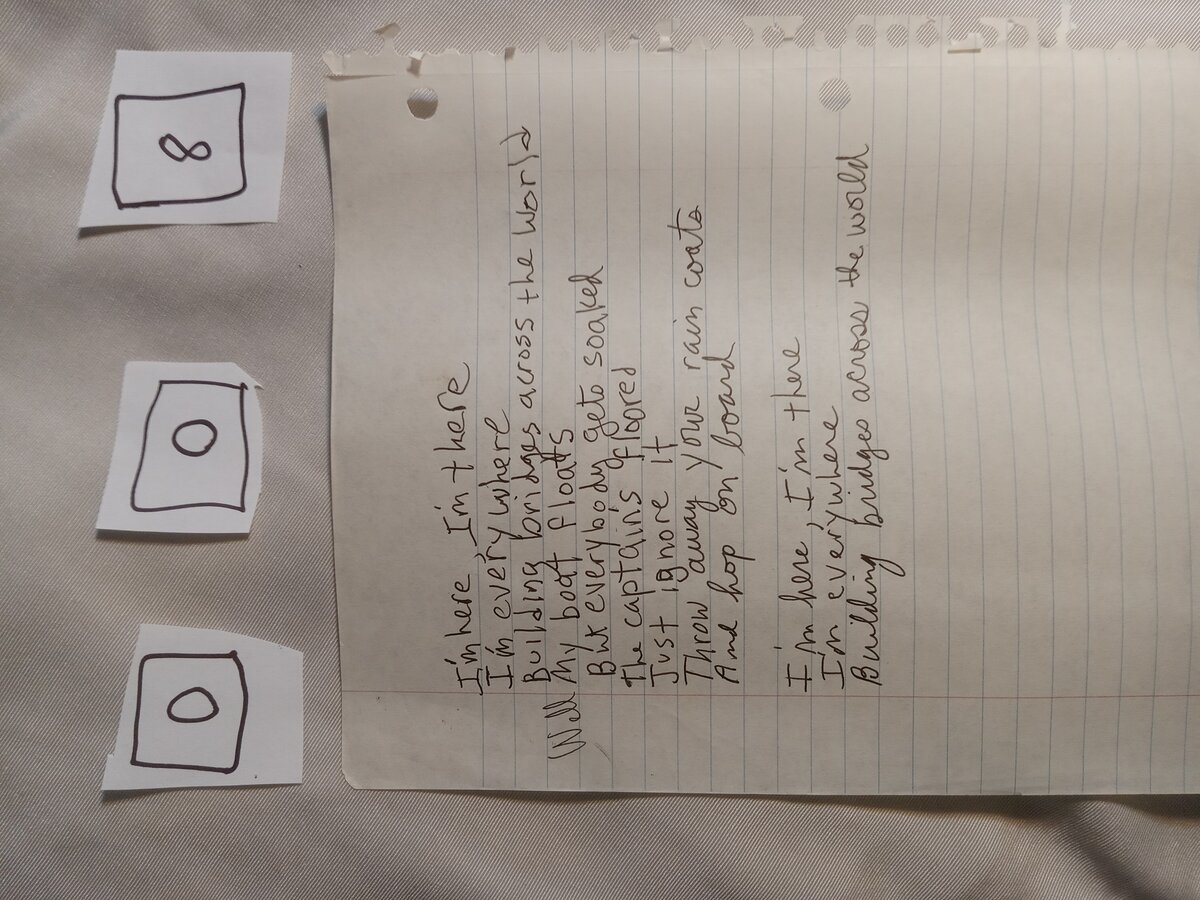 0 0 8
I'm here, I'm there
I'm everywhere
Building bridges across the world
Well My boat floats
But everybody gets soaked
The captain's floored
Just ignore it
Throw away your rain coats
And hop on board
I'm here, I'm there
I'm everywhere
Building bridges across the world